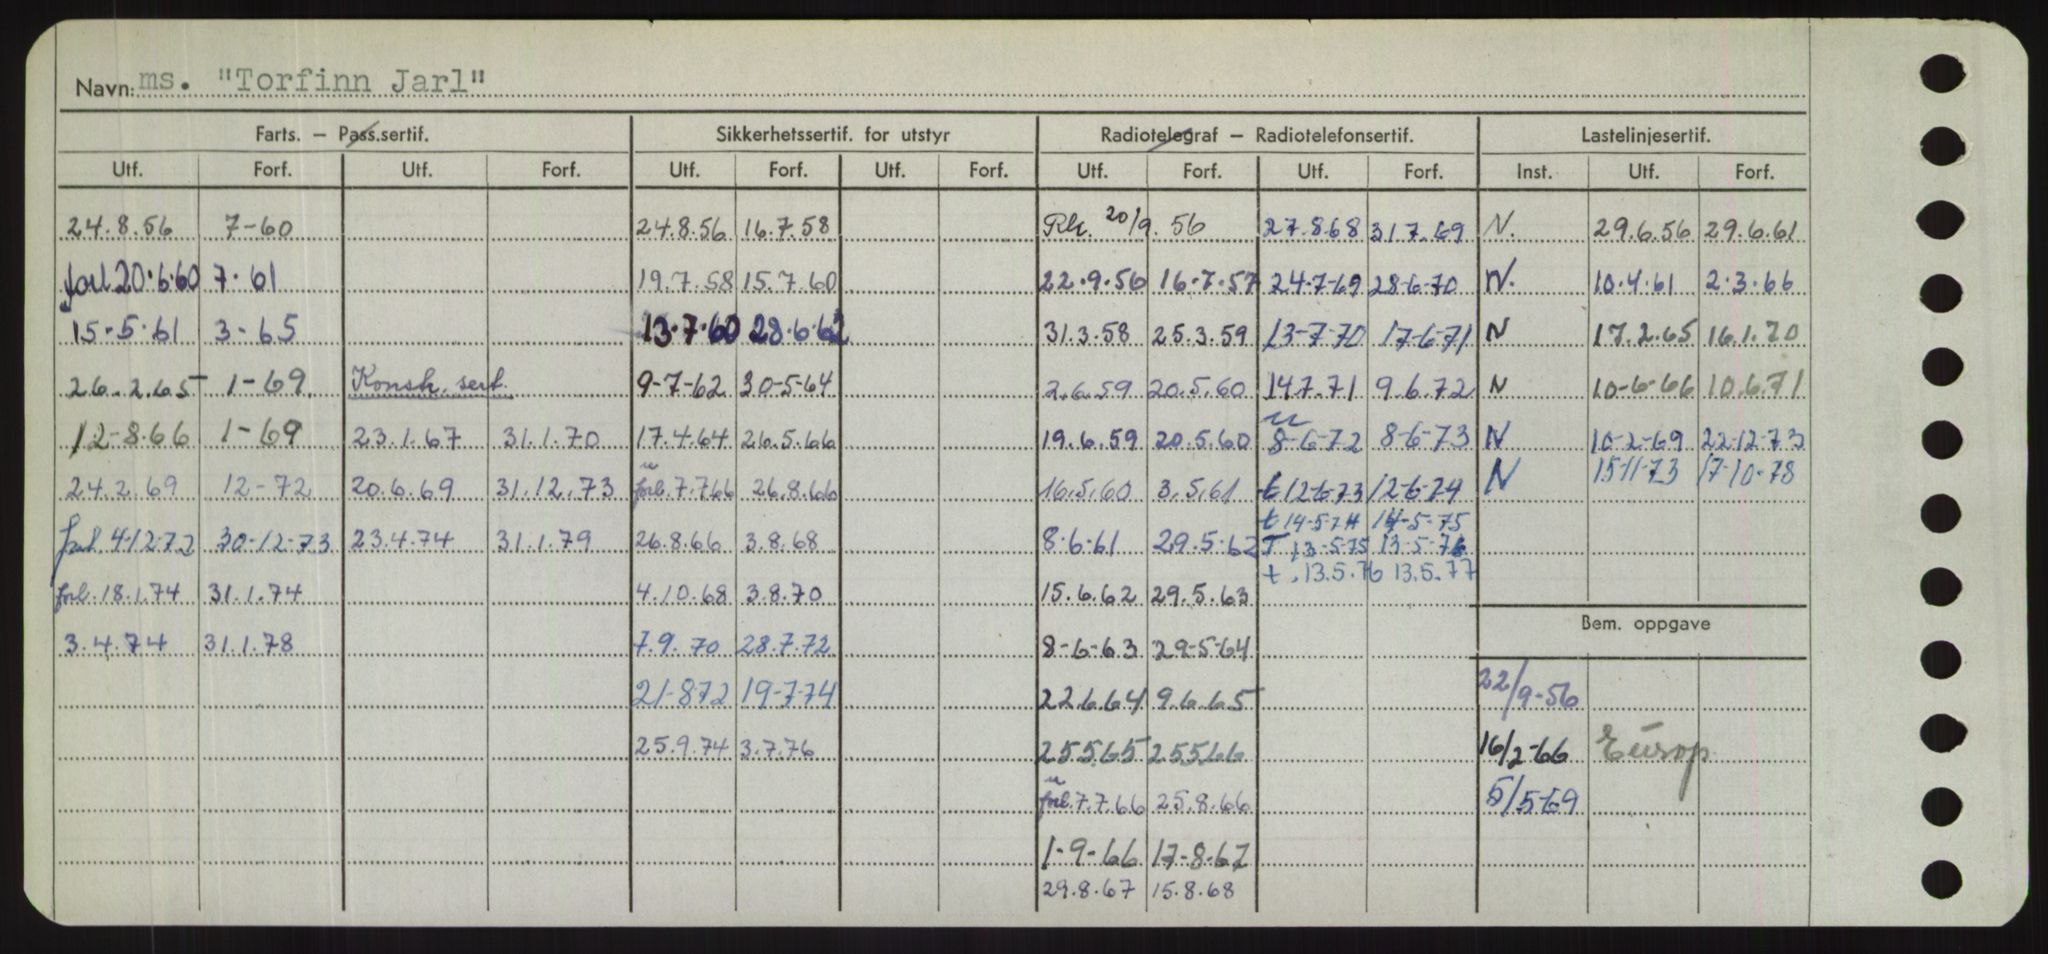 Navn: ms. "Torfinn Jarl"
Farts. — Pass.sertif. Sikkerhetssertif. for utstyr Radiotelegraf — Radiotelefonsertif. Lastelinjesertif.
Utf. Forf. Utf. Forf. Utf. Forf. Utf. Forf. Utf. Forf. Utf. Forf. Inst. Utf. Forf.
24.8.56 7-60 24.8.56 16.7.58 20/9.56 27.8.68 31.7.69 N. 29.6.56 29.6.61
forl 20.6.60 7.61 19.7.58 15.7.60 22.9.56 16-7-57 24-7-69 28-6-70 N. 10.4.61 2.3.66
15.5.61 3-65 13.7.60 28.6.62 31.3.58 25.3.59 13-7-70 17-6-71 N 17.2.65 16.1.70
26.2.65 1-69. Konstr. sert. 9-7-62 30-5-64 2.6.59 20.5.60 14.7.71 9.6.72 N 10-6-66 10.6.71
12-8.66 1-69 23.1.67 31.1.70 17.4.64 26.5.66 19.6.59 20.5.60 8-6-72 8-6-73 N 10-2-69 22-12-73
24.2.69 12-72 20.6.69 31.12.73 forl. 7.7.66 26.8.66 16.5.60 3.5.61 t 12-6-73 12-6-74 N 15-11-73 17-10-78
forl. 4-12-72 30-12-73 23.4.74 31.1.79 26.8.66 3.8.68 8.6.61 29.5.62 t 14-5-74 14-5-75
T 13-5-75 13-5-76
t. 13.5.76 13.5.77
forl. 18.1.74 31.1.74 4.10.68 3.8.70 15.6.62 29.5.63
3.4.74 31.1.78 7.9.70 28.7.72 8-6-63 29-5-64 Bem. oppgave
21-8-72 19-7-74 22.6.64 9.6.65 22/9-56
25.9.74 3.7.76 25.5.65 25.5.66 16/2-66 Europ.
forl. 7.7.66 25.8.66 5/5-69
1-9-66 17-8-67
29.8.67 15.8.68